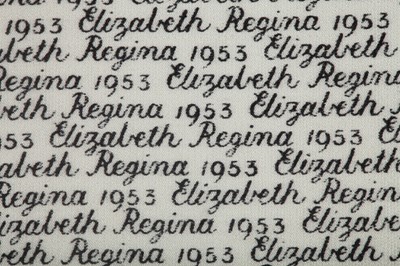 1953 Elizabeth Regina 1953
Elizabeth Regina 1953 Elizabeth
Regina 1953 Elizabeth Regina
Regina 1953 Elizabeth
1953 Elizabeth Regina 1953
Elizabeth Regina 1953 Elizabeth
Regina 1953 Elizabeth Regina
Elizabeth Regina 1953
Regina 1953 Elizabeth